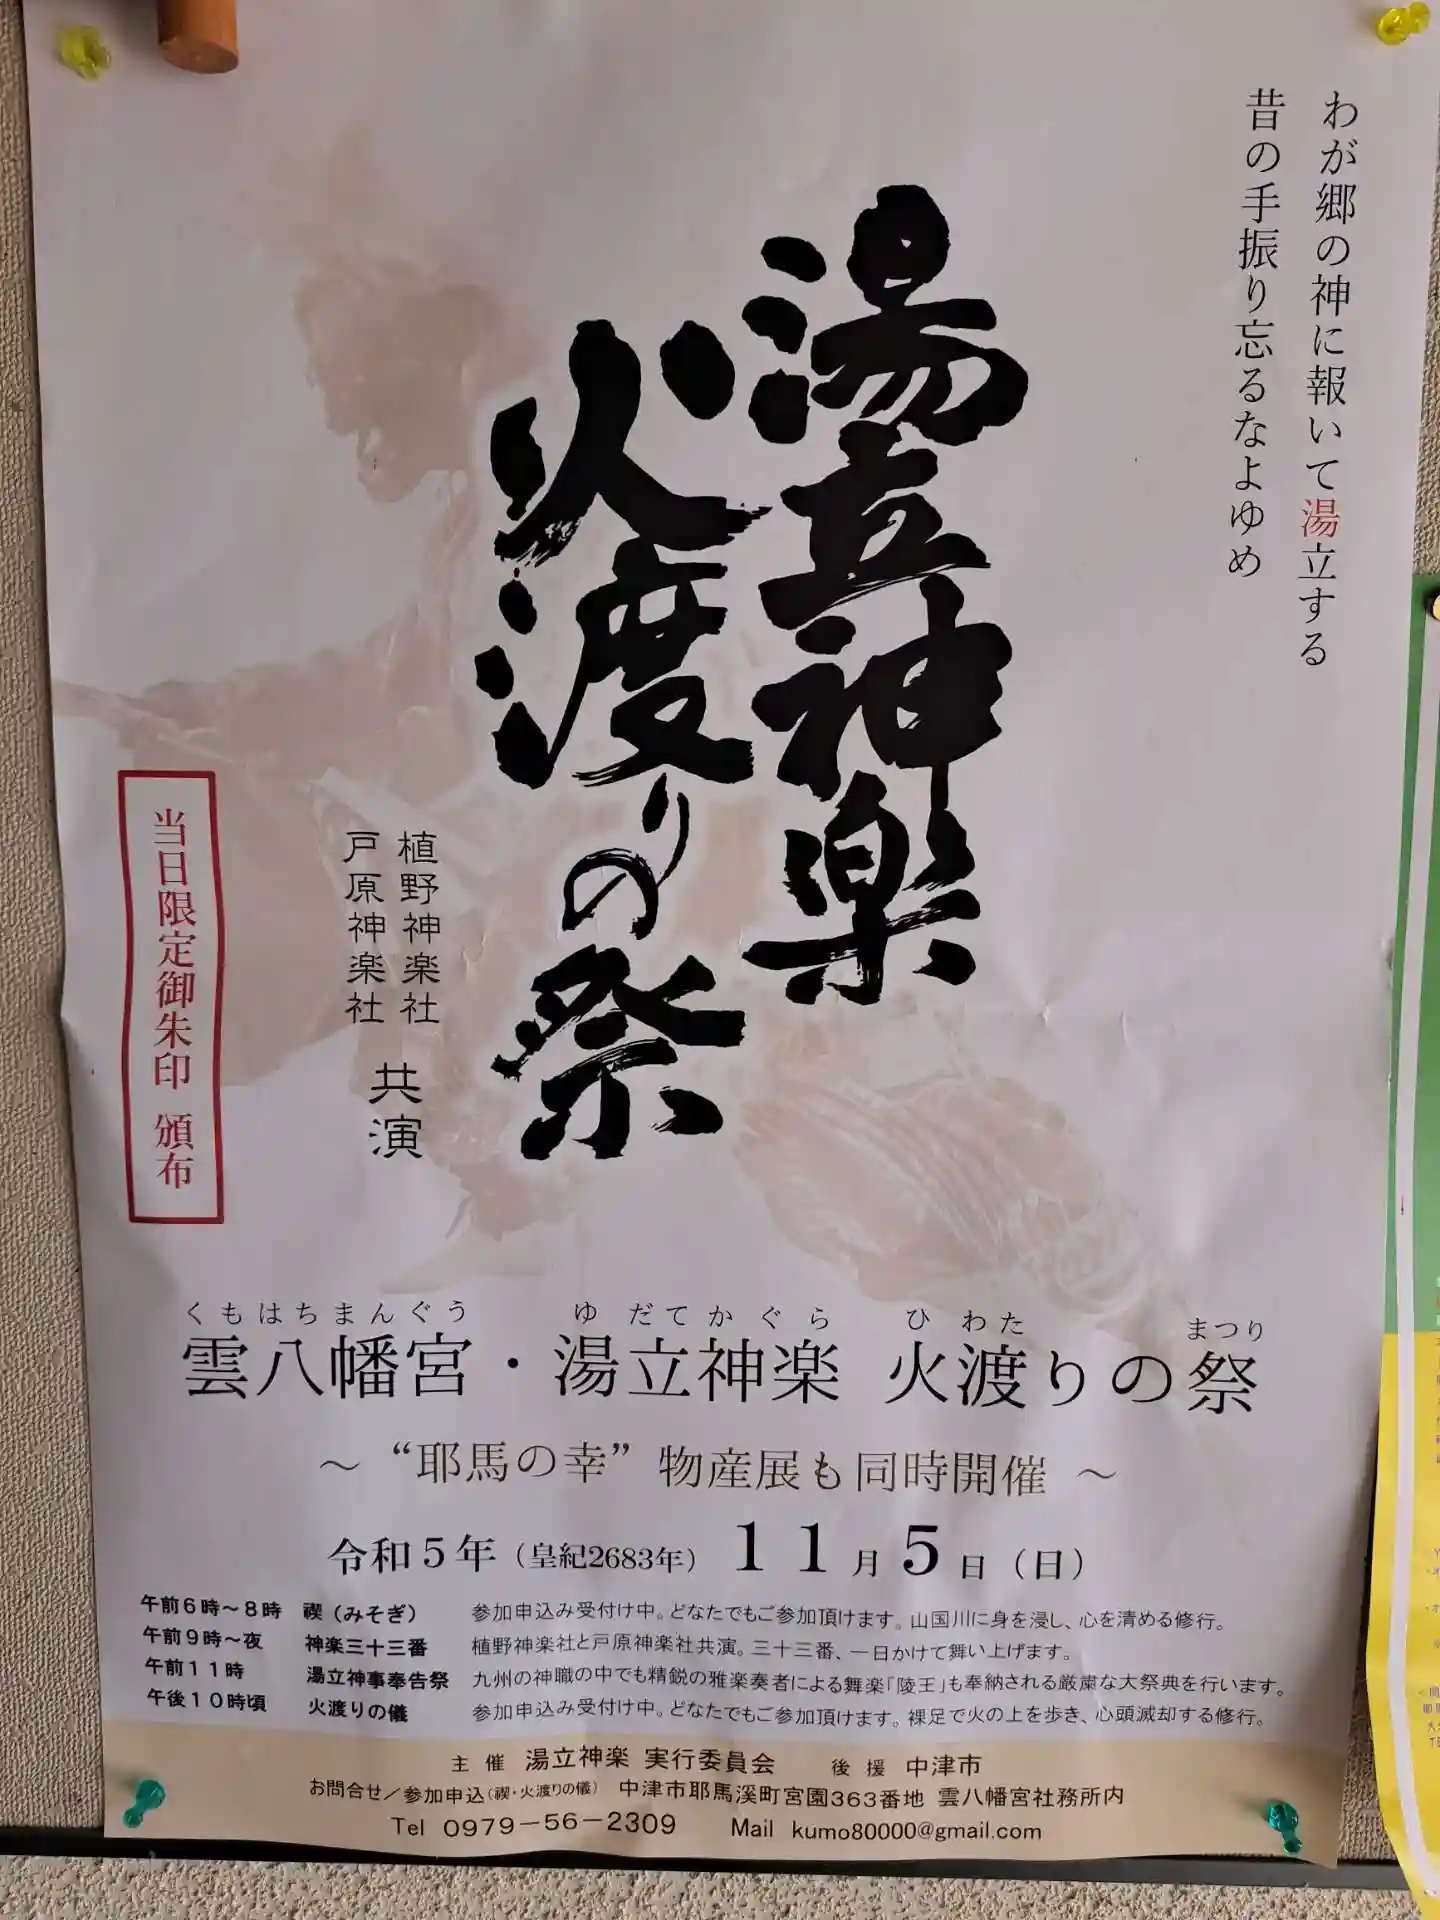 わが郷の神に報いて湯立する
昔の手振り忘るなよゆめ
湯立神楽
火渡りの祭
植野神楽社
戸原神楽社
共演
当日限定御朱印 頒布
くもはちまんぐう ゆだてかぐら ひわた まつり
雲八幡宮・湯立神楽 火渡りの祭
～ “耶馬の幸” 物産展も同時開催 ～
令和5年（皇紀2683年） 11月5日（日）
午前6時～8時 禊（みそぎ） 参加申込み受付け中。どなたでもご参加頂けます。山国川に身を浸し、心を清める修行。
午前9時～夜 神楽三十三番 植野神楽社と戸原神楽社共演。三十三番、一日かけて舞い上げます。
午前11時 湯立神事奉告祭 九州の神職の中でも精鋭の雅楽奏者による舞楽「陵王」も奉納される厳粛な大祭典を行います。
午後10時頃 火渡りの儀 参加申込み受付け中。どなたでもご参加頂けます。裸足で火の上を歩き、心頭滅却する修行。
主催 湯立神楽 実行委員会 後援 中津市
お問合せ／参加申込（禊・火渡りの儀） 中津市耶馬溪町宮園363番地 雲八幡宮社務所内
Tel 0979－56－2309 Mail kumo80000@gmail.com